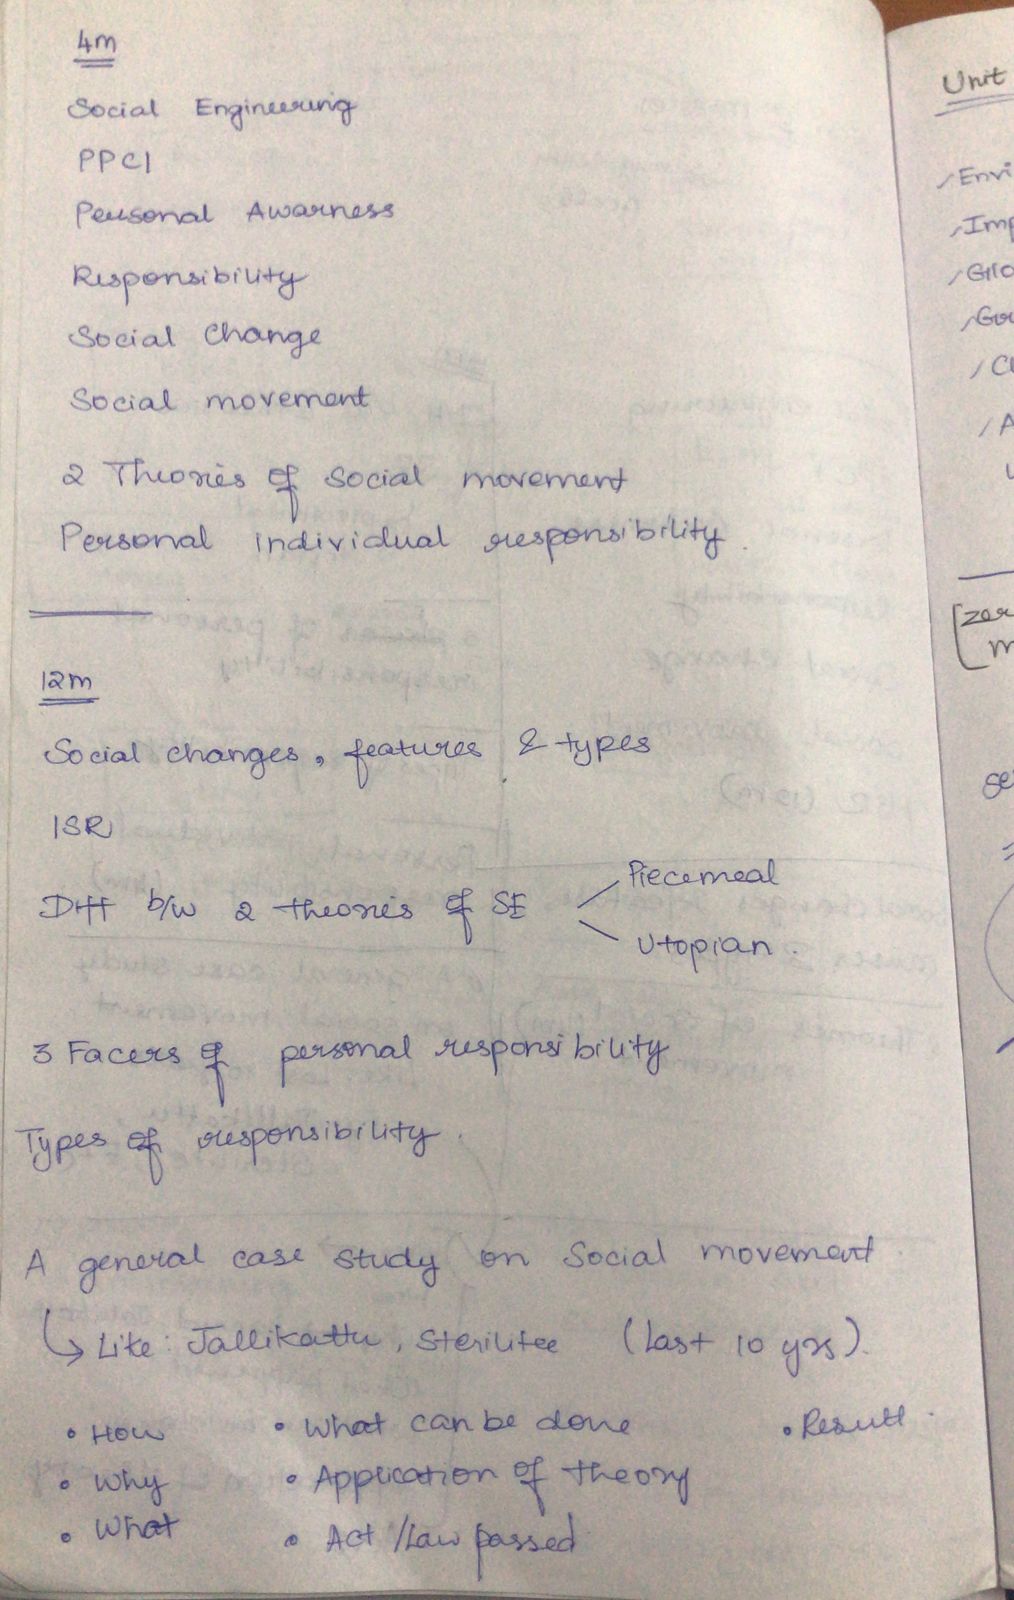 4m
Social Engineering
PPCI
Personal Awarness
Responsibility
Social Change
Social movement
2 Theories of Social movement
Personal individual responsibility.
12m
Social changes, features & types
ISR
Diff b/w 2 theories of SE
Piecemeal
Utopian.
3 Facers of personal responsibility
Types of responsibility.
A general case study on Social movement.
Like: Jallikattu, Sterilitee (last 10 yrs).
• How
• What can be done
• Result.
• Why
• Application of theory
• What
• Act / Law passed
Unit